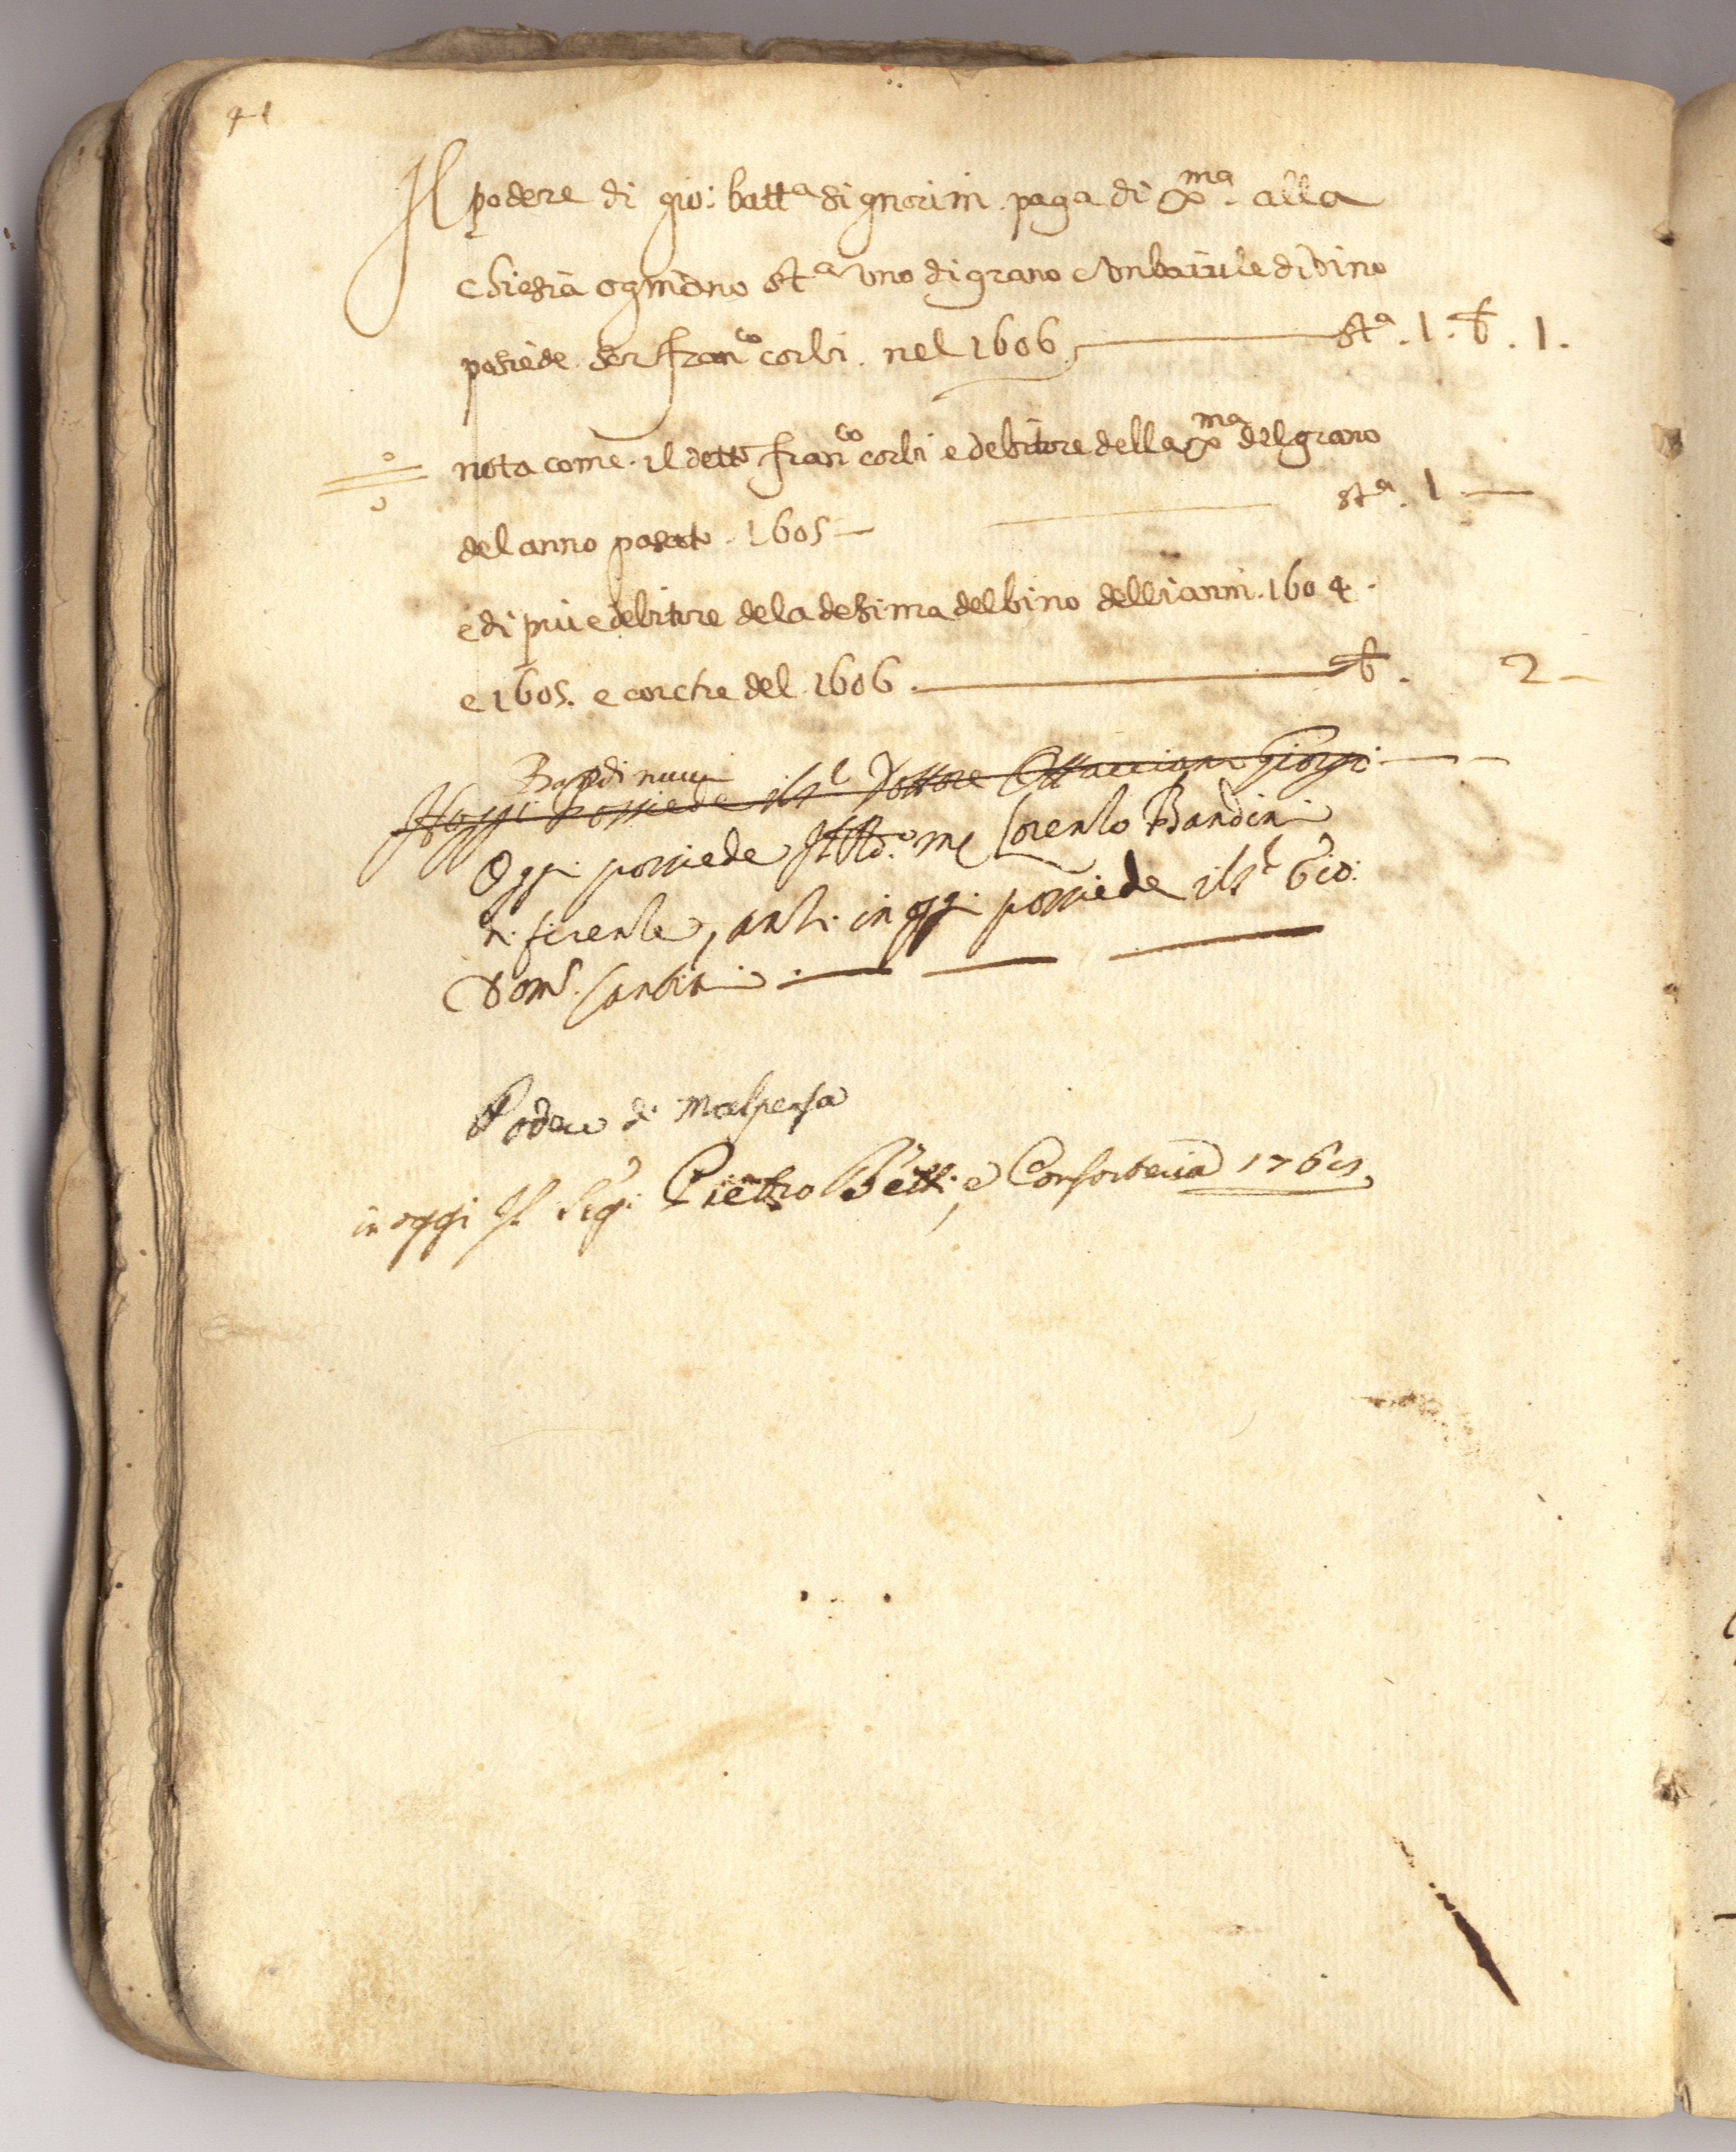 41
Il podere di gio: batt.a signorini paga di Xma. alla
chiesia ogniano st.a uno di grano e un barile di vino
posiede ser franco corbi. nel 1606 — st.a. 1. b. 1.
nota come. il detto franco corbi e debitore della Xma del grano
del anno pasato. 1605 — st.a. 1 —
e di piu e debitore dela desima del bino delli anni. 1604.
e 1605. e corche del. 1606. — b. 2 —
Bandinucci
Hoggi possiede il Sr. Dottore Ottacciano Giorgi. —
Oggi possiede Il Rd.o mr Lorenzo Bandini
di firenze, anzi in oggi possiede il Sr. Gio:
Dom.o Santini. —
Podere di Malpensa
in oggi Il Sig.r Pietro Betti, e Consorteria